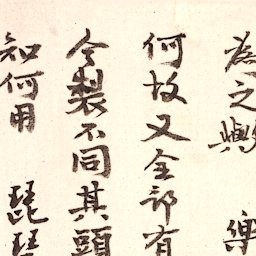 為之歟 樂
何故又全部有
今製不同其頭
知何用 琵琶